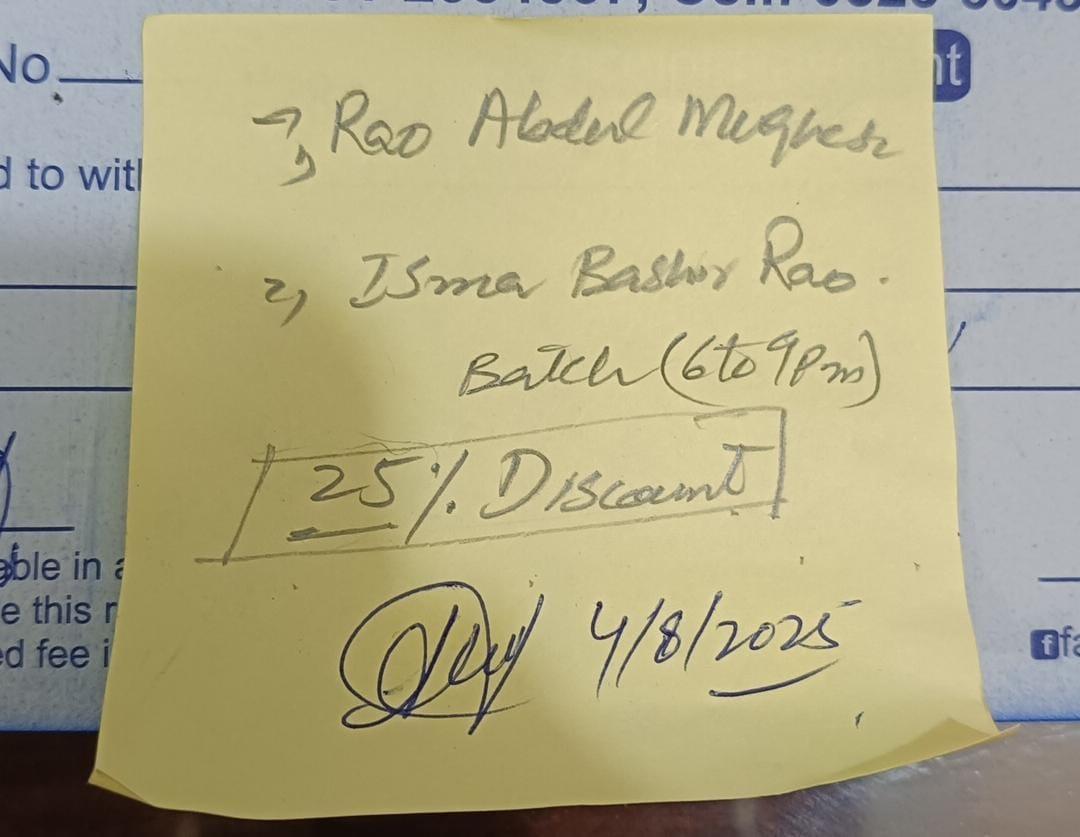 No
nt
d to with
→ Rao Abdul
1,
2, Isma Bashir Rao.
Batch (6 to 9 Pm)
25 % Discount
4/8/2025
able in a
e this r
ed fee i
fa